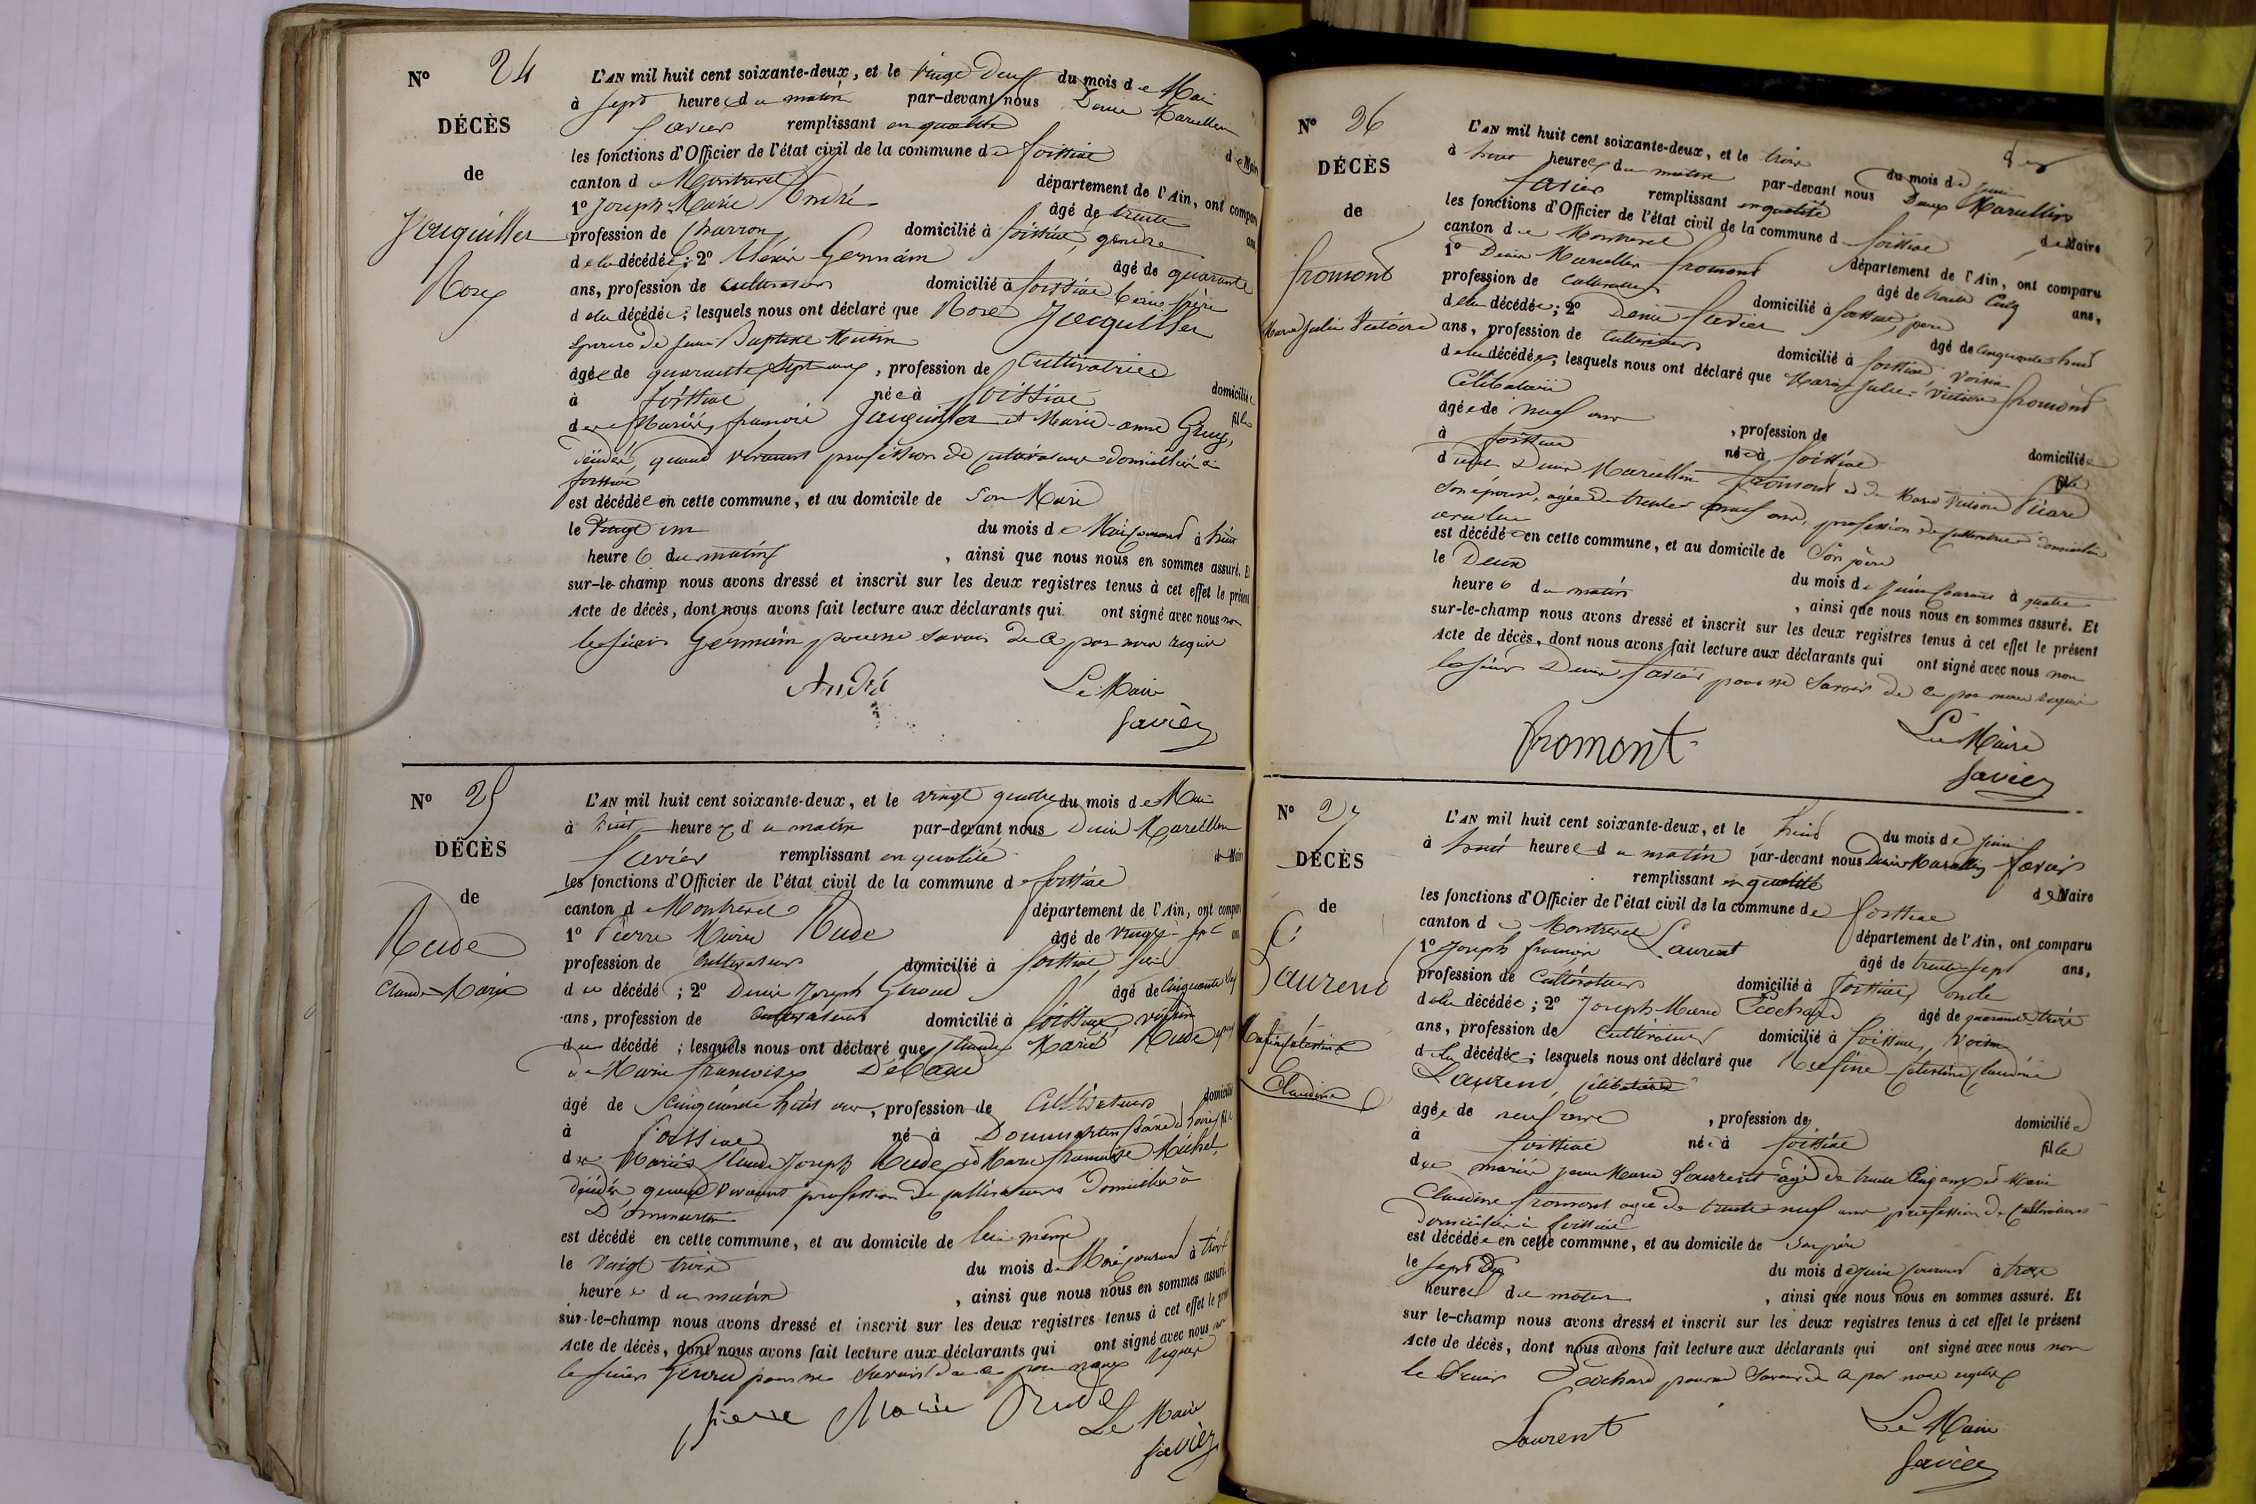 N° 24
DÉCÈS
de
Jouquiller
Rose
L'AN mil huit cent soixante-deux, et le vingt deux du mois de Mai
à sept heures du matin par-devant nous Denis Marcellin
favier remplissant en qualité
de Maire
les fonctions d'Officier de l'état civil de la commune de foissiat
canton de Montrevel département de l'Ain, ont compar
1° Joseph Marie André âgé de trente
ans
profession de charron domicilié à foissiat, gendre
de la décédée; 2° Germain âgé de quarante
ans, profession de cultivateur domicilié à foissiat frère
de la décédée; lesquels nous ont déclaré que Rose Jouquiller
épouse de Jean Baptiste
âgée de quarante sept ans, profession de Cultivatrice
domiciliée
à foissiat née à foissiat
fille
des Mariés françois Jouquiller et Marie-anne
décédés, quand vivaient profession de cultivateurs domiciliés à
foissiat
est décédée en cette commune, et au domicile de son Mari
le vingt un du mois de Mai courant à huit
heures du matin, ainsi que nous nous en sommes assuré. Et
sur-le-champ nous avons dressé et inscrit sur les deux registres tenus à cet effet le présent
Acte de décès, dont nous avons fait lecture aux déclarants qui ont signé avec nous non
le sieur Germain pour ne savoir de ce par nous requis
André
Le Maire
favier
N° 25
DÉCÈS
de
Rude
Claude-Marie
L'AN mil huit cent soixante-deux, et le vingt quatre du mois de Mai
à huit heures du matin par-devant nous Denis Marcellin
favier remplissant en qualité
de Maire
les fonctions d'Officier de l'état civil de la commune de foissiat
canton de Montrevel département de l'Ain, ont compar
1° Pierre Marie Rude âgé de vingt-sept
profession de Cultivateur domicilié à foissiat fils
du décédé; 2° Denis Joseph Giroud âgé de cinquante
ans, profession de cultivateur domicilié à foissiat, voisin
du décédé; lesquels nous ont déclaré que Claude Marie Rude
de Marie françoise
âgé de cinquante huit ans, profession de Cultivateur
domicilié
à foissiat né à Dommartin
fils
des Mariés Claude Joseph Rude et Marie françoise Michel,
décédés quand vivaient profession de cultivateurs domiciliés à
Dommartin
est décédé en cette commune, et au domicile de lui même
le vingt trois du mois de Mai courant à trois
heures du matin, ainsi que nous nous en sommes assuré.
sur-le-champ nous avons dressé et inscrit sur les deux registres tenus à cet effet le
Acte de décès, dont nous avons fait lecture aux déclarants qui ont signé avec nous non
le sieur Giroud pour ne savoir de ce par nous requis
pierre Marie Rude
Le Maire
favier
N° 26
DÉCÈS
de
fromont
Marie Julie Victoire
L'AN mil huit cent soixante-deux, et le trois du mois de juin
à huit heures du matin par-devant nous Denis Marcellin
favier remplissant en qualité
de Maire
les fonctions d'Officier de l'état civil de la commune de foissiat
canton de Montrevel département de l'Ain, ont comparu
1° Denis Marcellin fromont âgé de trente Cinq
ans,
profession de cultivateur domicilié à foissiat, père
de la décédée; 2° Denis favier âgé de cinquante huit
ans, profession de cultivateur domicilié à foissiat voisin
de la décédée; lesquels nous ont déclaré que Marie Julie-Victoire fromont
Célibataire
âgée de neuf ans, profession de
domiciliée
à foissiat née à foissiat
fille
de Denis Marcellin fromont et de Marie Picard
son épouse, agée de trente neuf ans, profession de cultivatrice domiciliée
avec lui
est décédée en cette commune, et au domicile de son père
le Deux du mois de juin courant à quatre
heures du matin, ainsi que nous nous en sommes assuré. Et
sur-le-champ nous avons dressé et inscrit sur les deux registres tenus à cet effet le présent
Acte de décès, dont nous avons fait lecture aux déclarants qui ont signé avec nous non
le sieur Denis favier pour ne savoir de ce par nous requis
fromont
Le Maire
favier
N° 27
DÉCÈS
de
Laurent
Claudine
L'AN mil huit cent soixante-deux, et le huit du mois de juin
à huit heures du matin par-devant nous Denis Marcellin favier
remplissant en qualité de Maire
les fonctions d'Officier de l'état civil de la commune de foissiat
canton de Montrevel département de l'Ain, ont comparu
1° Joseph françois Laurent âgé de trente sept ans,
profession de cultivateur domicilié à foissiat, oncle
de la décédée; 2° Joseph Marie Pochard âgé de quarante trois
ans, profession de Cultivateur domicilié à foissiat, voisin
de la décédée; lesquels nous ont déclaré que Celestine Claudine
Laurent, célibataire
âgée de neuf ans, profession de domiciliée
à foissiat née à foissiat fille
des mariés jean Marie Laurent âgé de trente Cinq ans et Marie
Claudine fromont agée de trente-neuf ans profession de Cultivateurs
domiciliés à foissiat
est décédée en cette commune, et au domicile de son père
le sept du mois de juin courant à trois
heures du matin, ainsi que nous nous en sommes assuré. Et
sur le-champ nous avons dressé et inscrit sur les deux registres tenus à cet effet le présent
Acte de décès, dont nous avons fait lecture aux déclarants qui ont signé avec nous non
le Sieur Pochard pour ne savoir de ce par nous requis
Laurent
Le Maire
favier